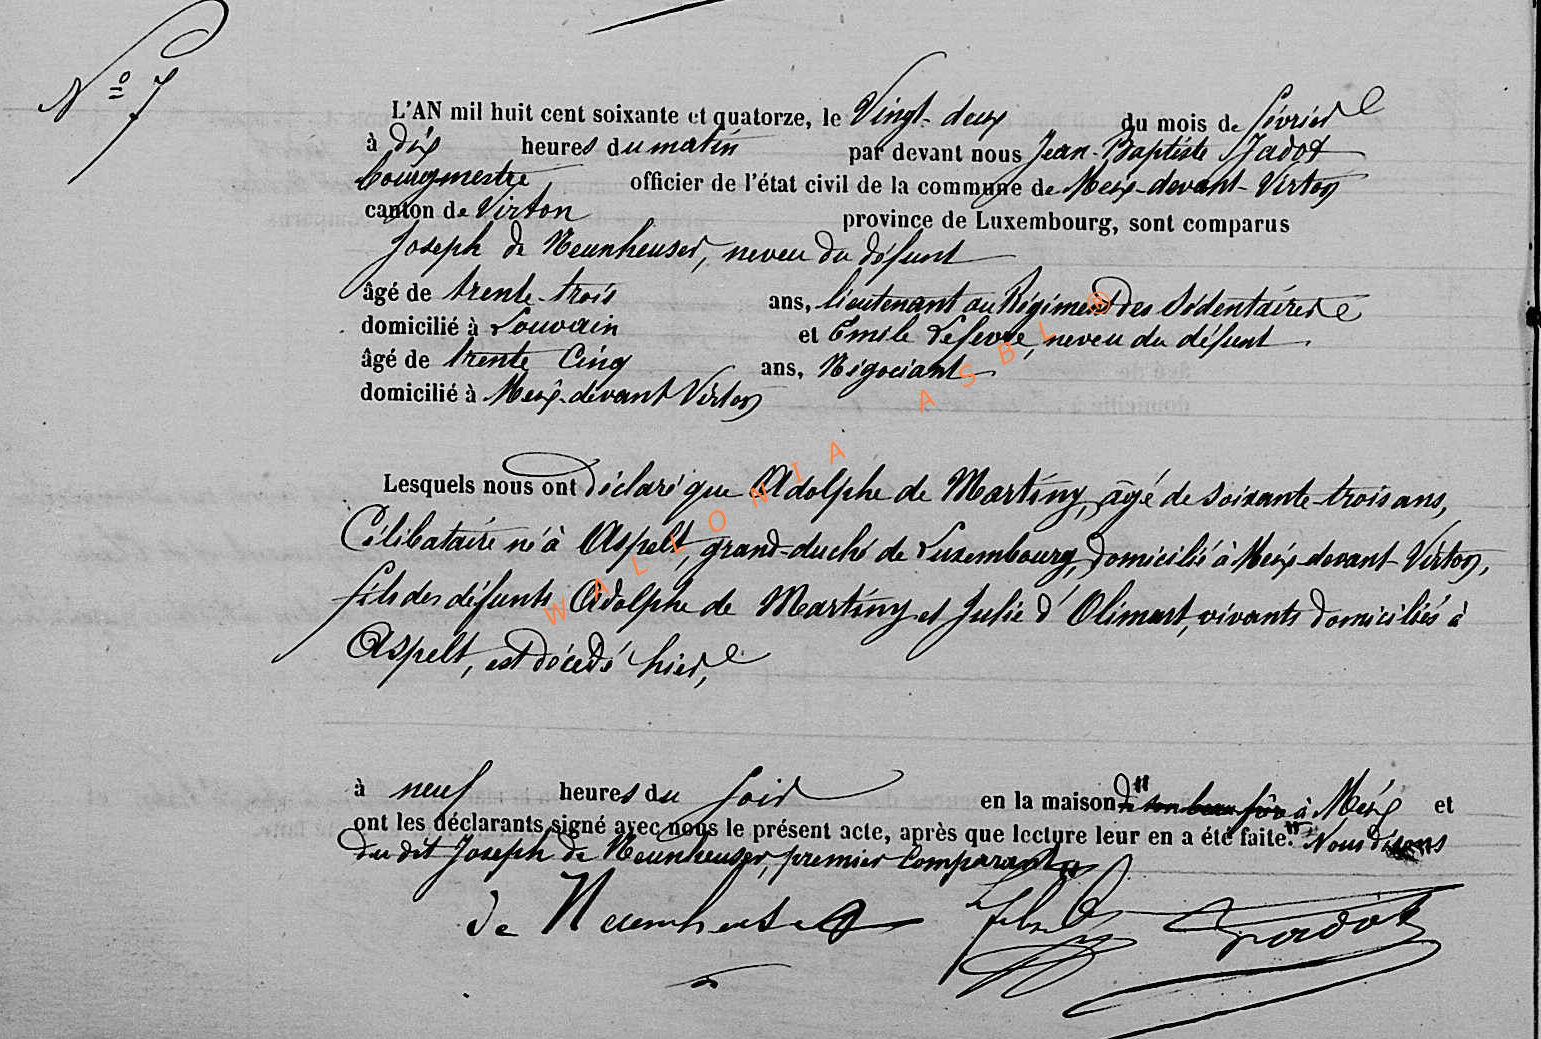 N° 7
L'AN mil huit cent soixante et quatorze, le Vingt-deux du mois de février
à dix heures du matin par devant nous Jean-Baptiste Jadot
bourgmestre officier de l'état civil de la commune de Meix-devant-Virton
canton de Virton province de Luxembourg, sont comparus
Joseph de Neunheuser, neveu du défunt
âgé de trente-trois ans, lieutenant au Régiment des Sédentaires
domicilié à Louvain et Emile Lefevre, neveu du défunt
âgé de trente cinq ans, Négociant
domicilié à Meix-devant Virton
Lesquels nous ont déclaré que Adolphe de Martiny, âgé de soixante-trois ans,
Célibataire né à Aspelt, grand-duché de Luxembourg, domicilié à Meix-devant-Virton,
fils des défunts Adolphe de Martiny et Julie d'Olimart, vivants domiciliés à
Aspelt, est décédé hier,
à neuf heures du soir en la maison de son beau frère à Meix et
ont les déclarants signé avec nous le présent acte, après que lecture leur en a été faite. " Nous disons
du dit Joseph de Neunheuser, premier comparant "
de Neunheuser Jadot
WALLONIA ASBL ®